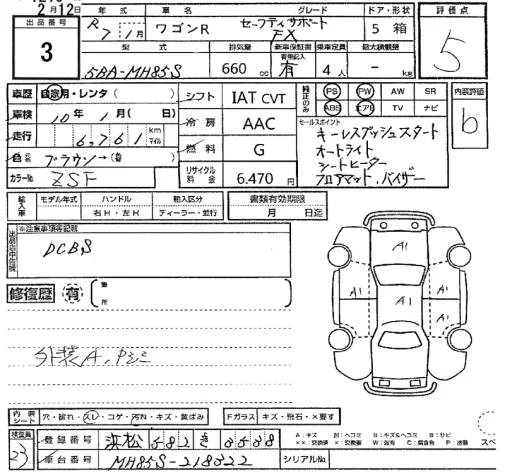 2月12日
年式 車名 グレード ドア・形状 評価点
出品番号
3
R7/1月 ワゴンR セーフティサポート FX 5 箱
5
型式 排気量 新車保証書 乗車定員 最大積載量
5BA-MH85S 660 cc 有 4人 - kg
車歴 自家用・レンタ( ) シフト IAT CVT PS PW AW SR 内装評価
ABS エアB TV ナビ
b
車検 10年1月( 日) 冷房 AAC セールスポイント
キーレスプッシュスタート
走行 6,761 km マイル
オートライト
色名 ブラウン→(替) 燃料 G シートヒーター
カラーNo ZSF リサイクル料金 6.470円 フロアマット、バイザー
輸入車 モデル年式 ハンドル 輸入区分 書類有効期限
右H・左H ディーラー・並行 月 日迄
出品店申告欄 ※注意事項等記載
DCBS
A1
修復歴 有 箇所
A1 A1 A1
外装A、Pシミ
内装シート 穴・破れ・スレ・コゲ・汚れ・キズ・黄ばみ Fガラス キズ・飛石・×要す
検査員 23 登録番号 浜松
A:キズ H:ヘコミ B:キズ&ヘコミ S:サビ
××:交換済 ×:交換要 W:波有 C:腐食有 P:塗装 スペ
車台番号 MH85S-218322 シリアルNo.